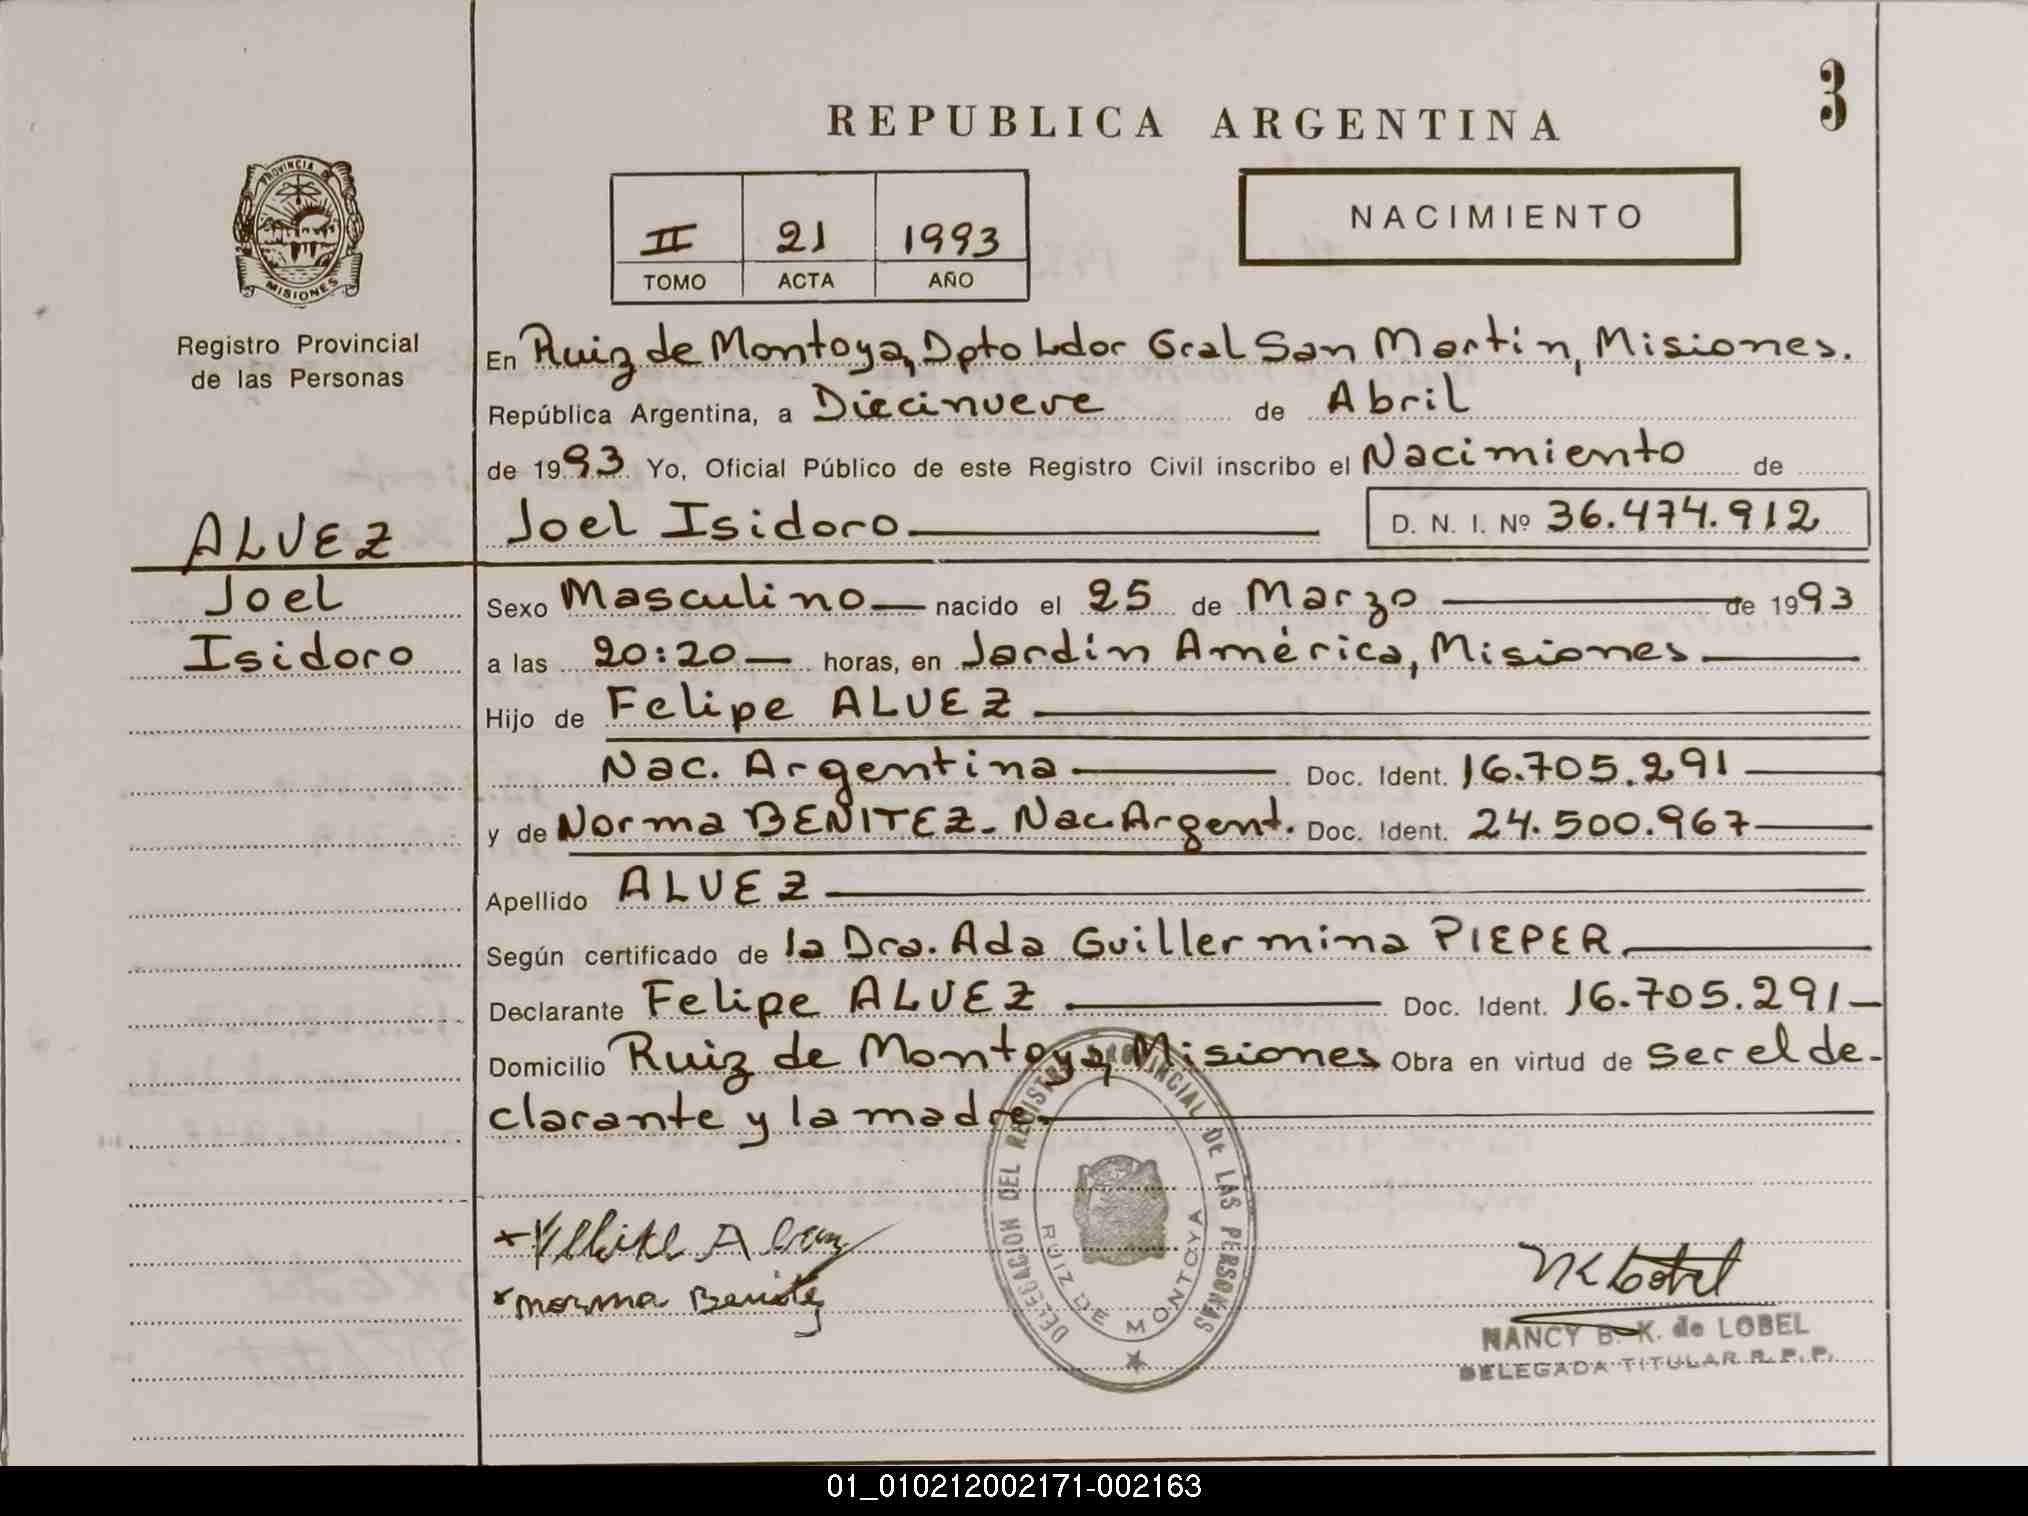 3
REPUBLICA ARGENTINA
PROVINCIA DE
MISIONES
Registro Provincial
de las Personas
II 21 1993
TOMO ACTA AÑO
NACIMIENTO
En Ruiz de Montoya, Dpto Ldor Gral San Martín, Misiones.
República Argentina, a Diecinueve de Abril
de 1993 Yo, Oficial Público de este Registro Civil inscribo el Nacimiento de
Joel Isidoro D. N. I. Nº 36.474.912
ALVEZ
Joel
Isidoro
Sexo Masculino nacido el 25 de Marzo de 1993
a las 20:20 horas, en Jardín América, Misiones
Hijo de Felipe ALVEZ
Nac. Argentina Doc. Ident. 16.705.291
y de Norma BENITEZ. Nac Argent. Doc. Ident. 24.500.967
Apellido ALVEZ
Según certificado de la Dra. Ada Guillermina PIEPER
Declarante Felipe ALVEZ Doc. Ident. 16.705.291
Domicilio Ruiz de Montoya, Misiones Obra en virtud de ser el de-
clarante y la madre.
DELEGACION DEL REGISTRO PROVINCIAL DE LAS PERSONAS
RUIZ DE MONTOYA
norma Benitez
NANCY B. K. de LOBEL
DELEGADA TITULAR R.P.P.
01_010212002171-002163